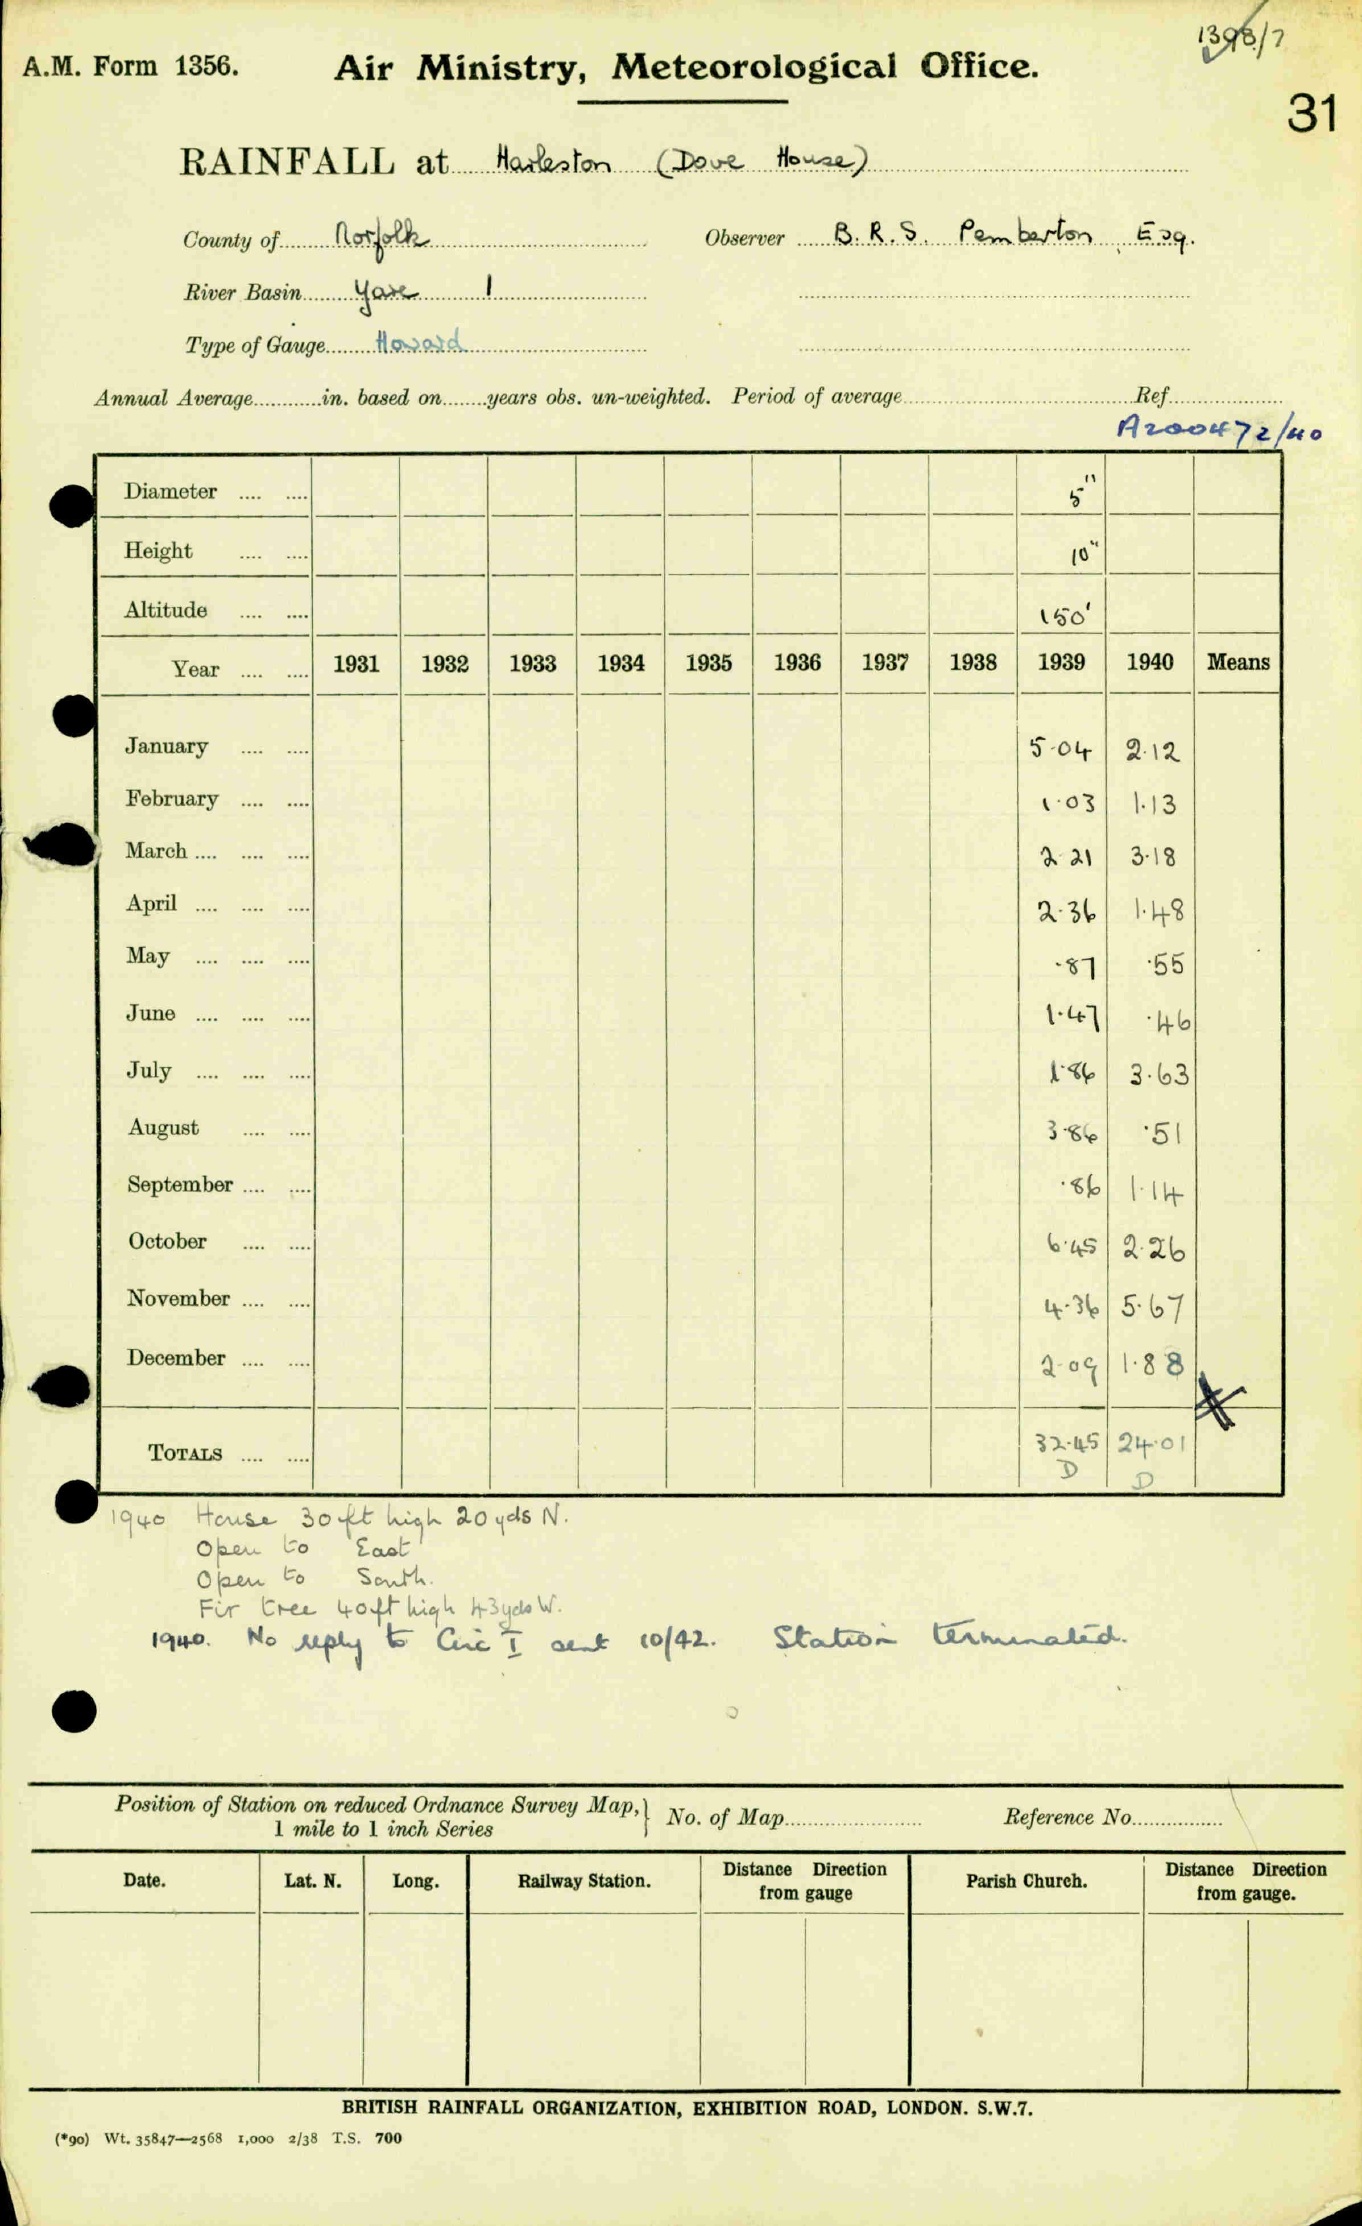 1398/7
A.M. Form 1356. Air Ministry, Meteorological Office.
31
RAINFALL at Harleston (Dove House)
County of Norfolk Observer B.R.S. Pemberton, Esq.
River Basin Yare 1
Type of Gauge Howard
Annual Average............in. based on........years obs. un-weighted. Period of average Ref
A200472/40
Diameter .... .... 5"
Height .... .... 10"
Altitude .... .... 150'
Year .... .... 1931 1932 1933 1934 1935 1936 1937 1938 1939 1940 Means
January .... .... 5.04 2.12
February .... .... 1.03 1.13
March .... .... .... 2.21 3.18
April .... .... .... 2.36 1.48
May .... .... .... .87 .55
June .... .... .... 1.47 .46
July .... .... .... 1.86 3.63
August .... .... 3.86 .51
September .... .... .86 1.14
October .... .... 6.45 2.26
November .... .... 4.36 5.67
December .... .... 2.09 1.88
TOTALS .... .... 32.45 24.01
D D
1940 House 30ft high 20yds N.
Open to East
Open to South.
Fir tree 40ft high 43yds W.
1940. No reply to Circ I sent 10/42. Station terminated.
Position of Station on reduced Ordnance Survey Map,} No. of Map Reference No
1 mile to 1 inch Series
Date. Lat. N. Long. Railway Station. Distance Direction from gauge Parish Church. Distance Direction from gauge.
BRITISH RAINFALL ORGANIZATION, EXHIBITION ROAD, LONDON. S.W.7.
(*90) Wt. 35847—2568 1,000 2/38 T.S. 700